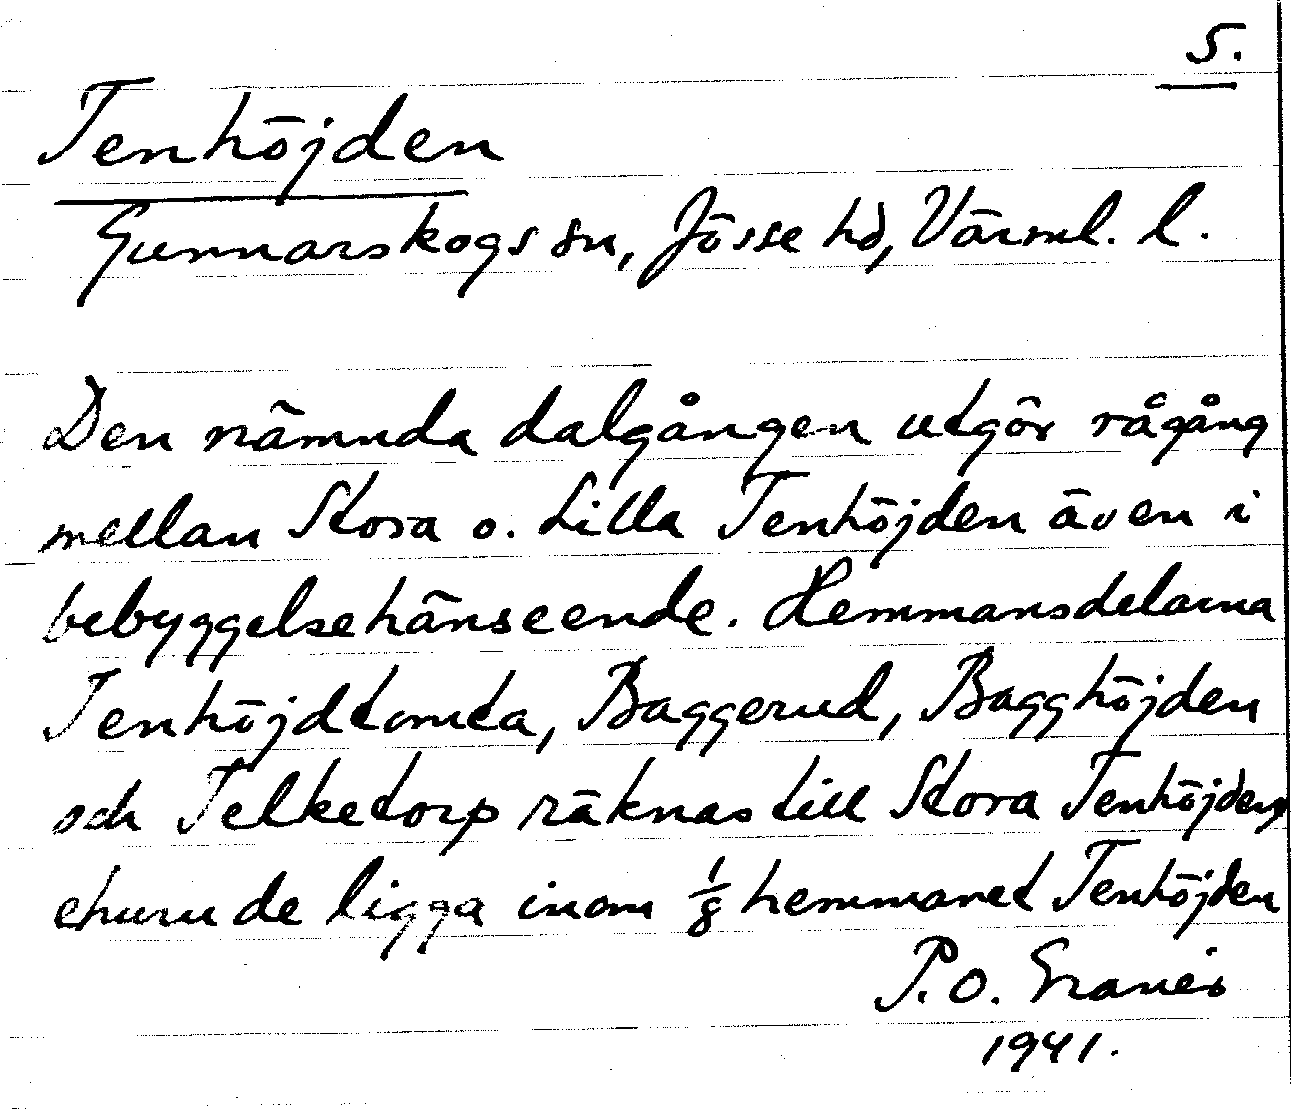 5.
Tenhöjden
Gunnarskogs sn, Jösse hd, Värml. l.
Den nämnda dalgången utgör rågång
mellan Stora o. Lilla Tenhöjden även i
bebyggelsehänseende. Hemmansdelarna
Tenhöjdtomta, Baggerud, Bagghöjden
och Telketorp räknas till Stora Tenhöjden,
ehuru de ligga inom 1/8 hemmanet Tenhöjden
P. O. Granér
1941.